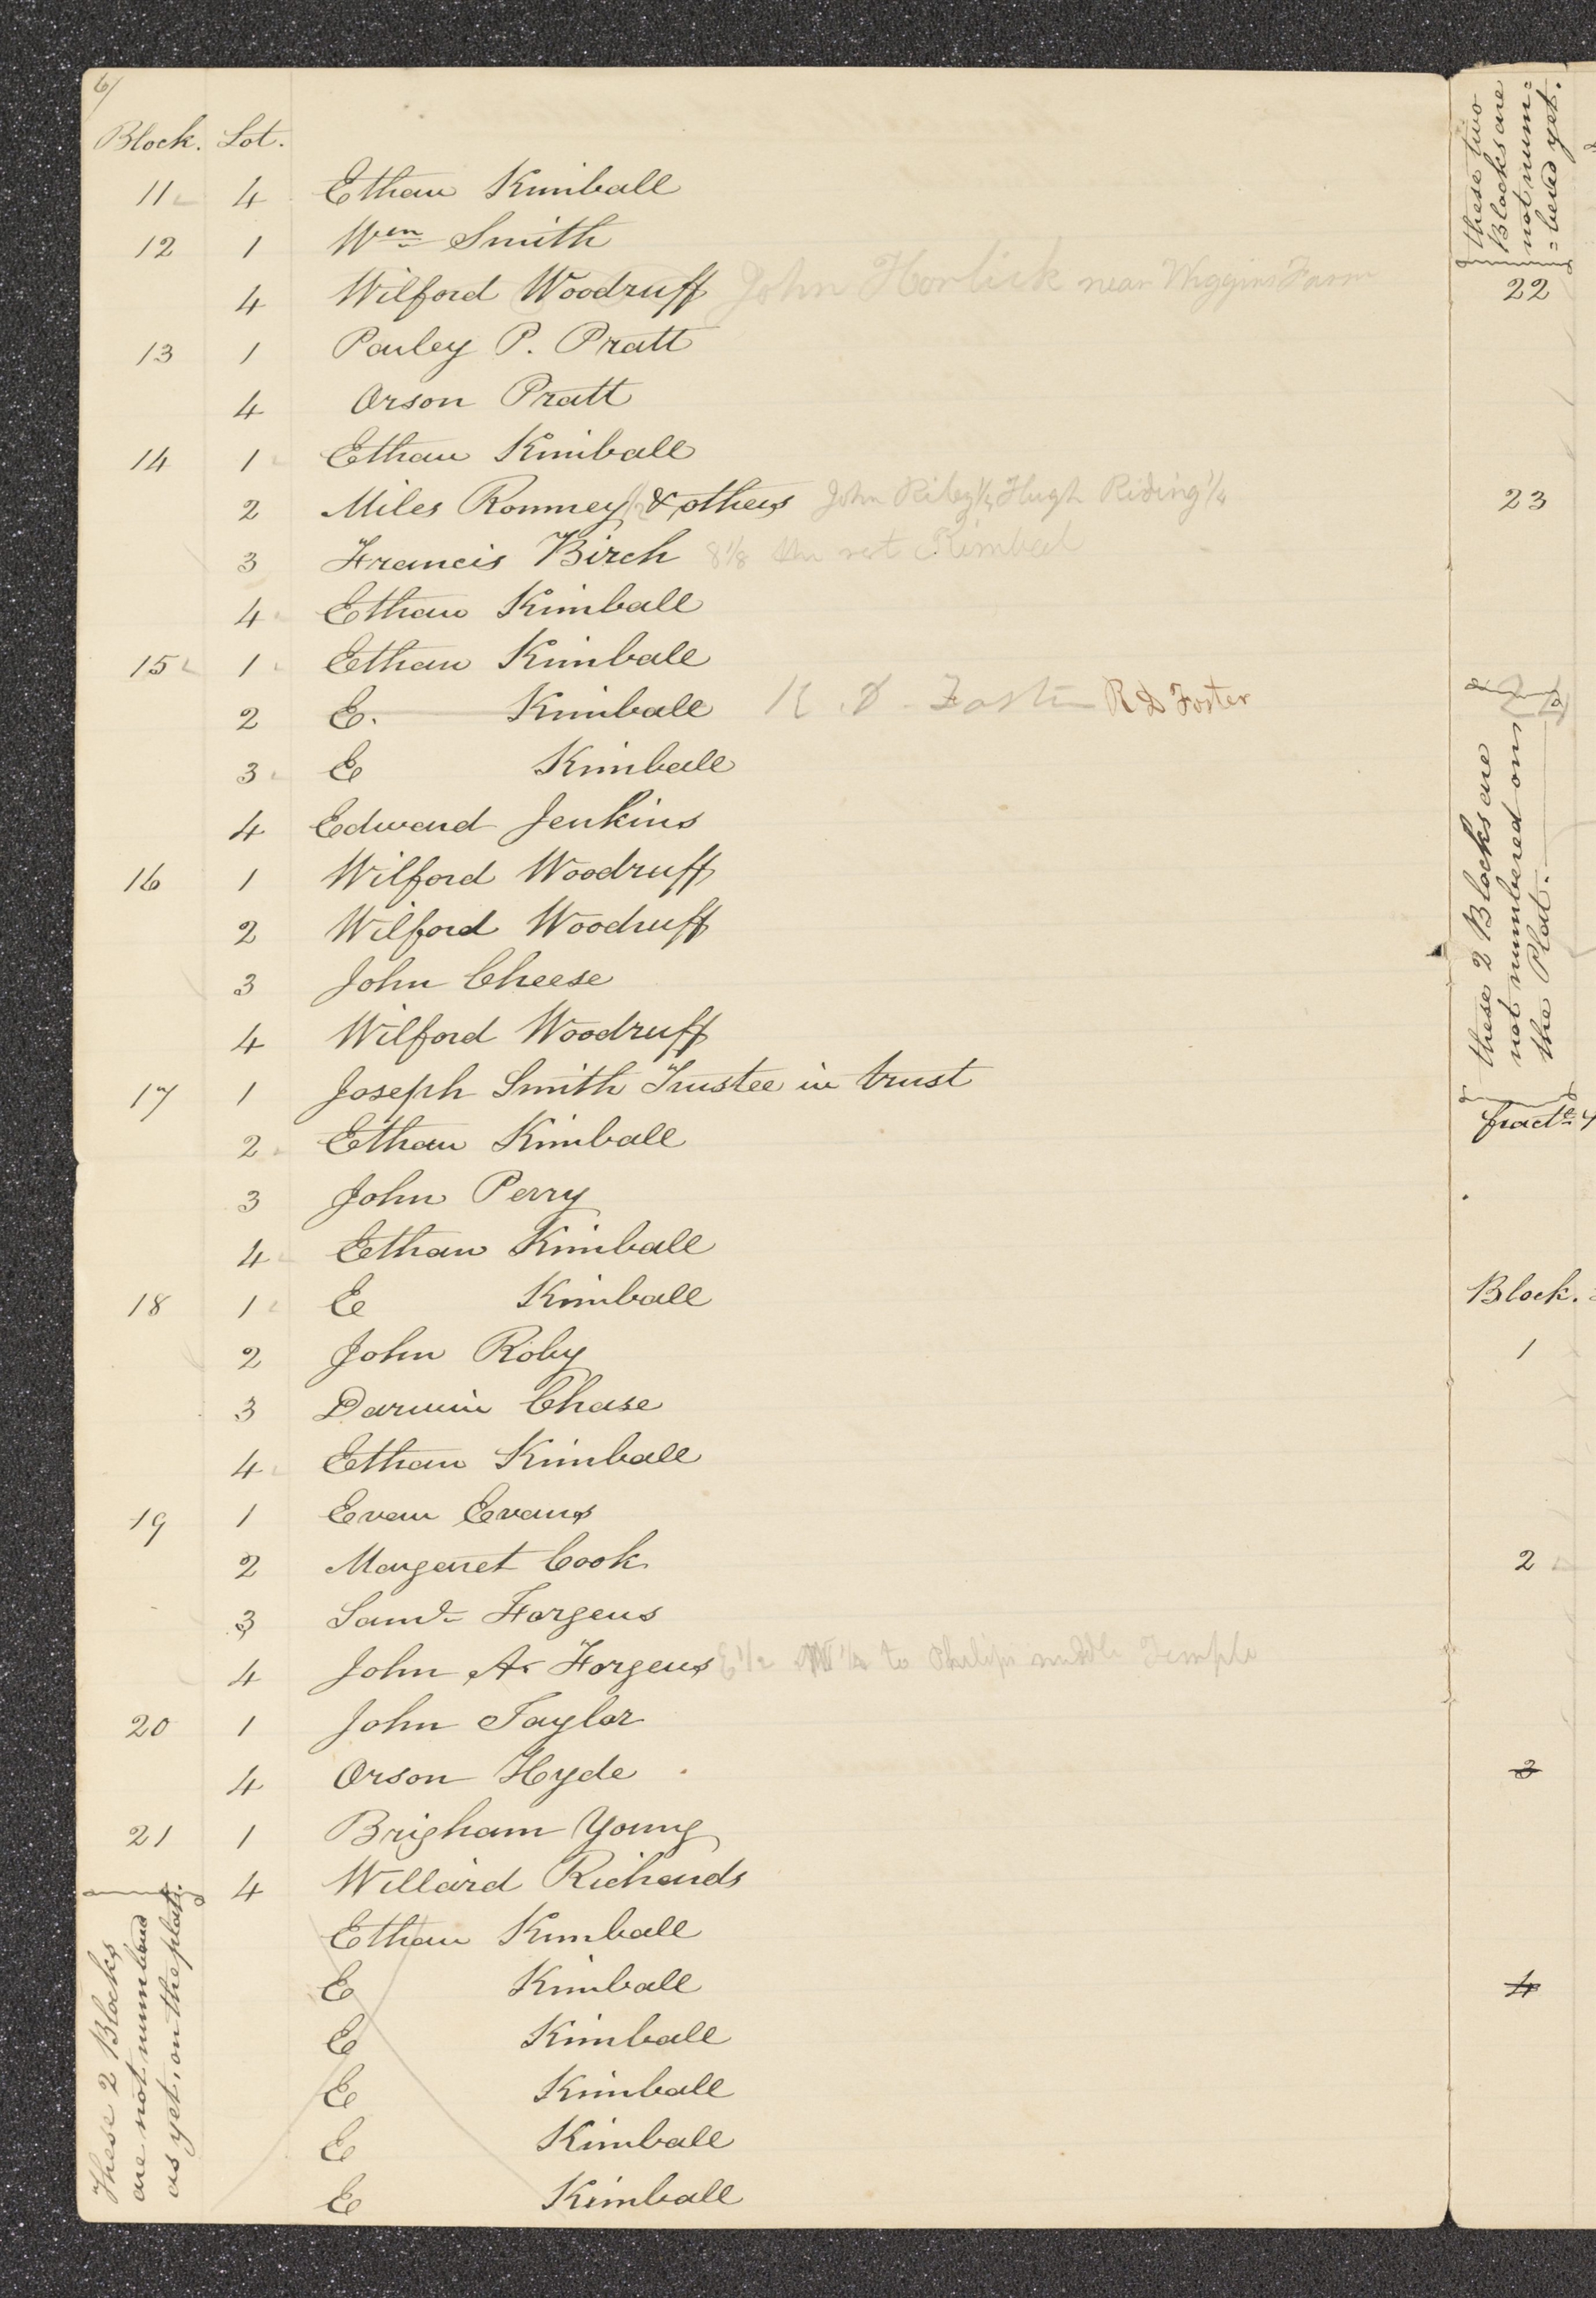 6/
Block. Lot.
11 4 Ethan Kimball
12 1 Wm Smith
4 Wilford Woodruff John Horlick near Wiggins Farm
13 1 Parley P. Pratt
4 Orson Pratt
14 1 Ethan Kimball
2 Miles Romney 1/2 & others John Riley 1/4 Hugh Riding 1/4
3 Francis Birch 8 1/8 the rest Kimball
4 Ethan Kimball
15 1 Ethan Kimball
2 E. Kimball R. D. Foster R D Foster
3 E Kimball
4 Edward Jenkins
16 1 Wilford Woodruff
2 Wilford Woodruff
3 John Cheese
4 Wilford Woodruff
17 1 Joseph Smith Trustee in trust
2 Ethan Kimball
3 John Perry
4 Ethan Kimball
18 1 E Kimball
2 John Roby
3 Darwin Chase
4 Ethan Kimball
19 1 Evan Evans
2 Margaret Cook
3 Saml Forgeus
4 John A. Forgeus E 1/2 1/4 to Philips middle Temple
20 1 John Taylor
4 Orson Hyde
21 1 Brigham Young
4 Willard Richards
Ethan Kimball
E Kimball
E Kimball
E Kimball
E Kimball
E Kimball
These 2 Blocks
are not numbered
as yet, on the plat.
these two
Blocks are
not num=
=bered yet.
22
23
these 2 Blocks are
not numbered on
the Plat.
fract.
Block.
1
2
3
4